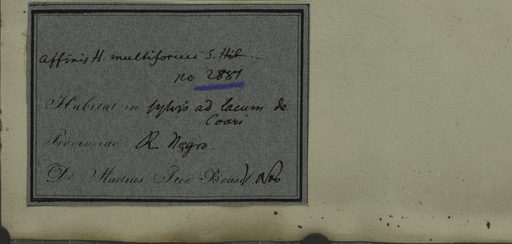 affinis H. multiformi S. Hil
no 2887
Habitat in sylvis ad lacum de
Coari
Provinciae R. Negro.
Dr Martius Iter Brasil. Nov